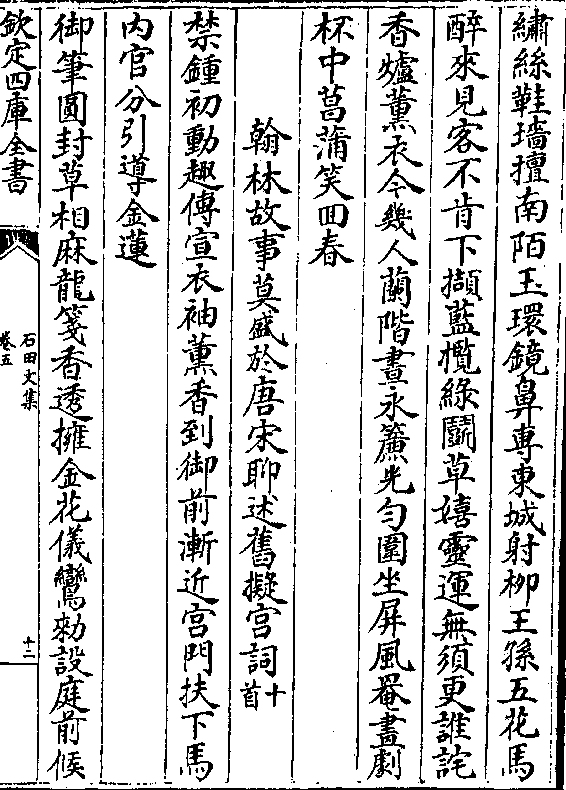 繡絲鞋墻擅南陌玉環鏡鼻專東城射柳王孫五花馬
醉來見客不肯下擷藍攬綠鬭草嬉靈運無須更誰詫
香爐薰衣今幾人蘭階晝永簾光勻圍坐屏風罨畫劇
杯中菖蒲笑回春
翰林故事莫盛於唐宋聊述舊擬宮詞十首
禁鍾初動趣傳宣衣袖薰香到御前漸近宮門扶下馬
內官分引導金蓮
御筆圓封草相麻龍箋香透擁金花儀鸞勑設庭前候
欽定四庫全書
石田文集
卷五
十二